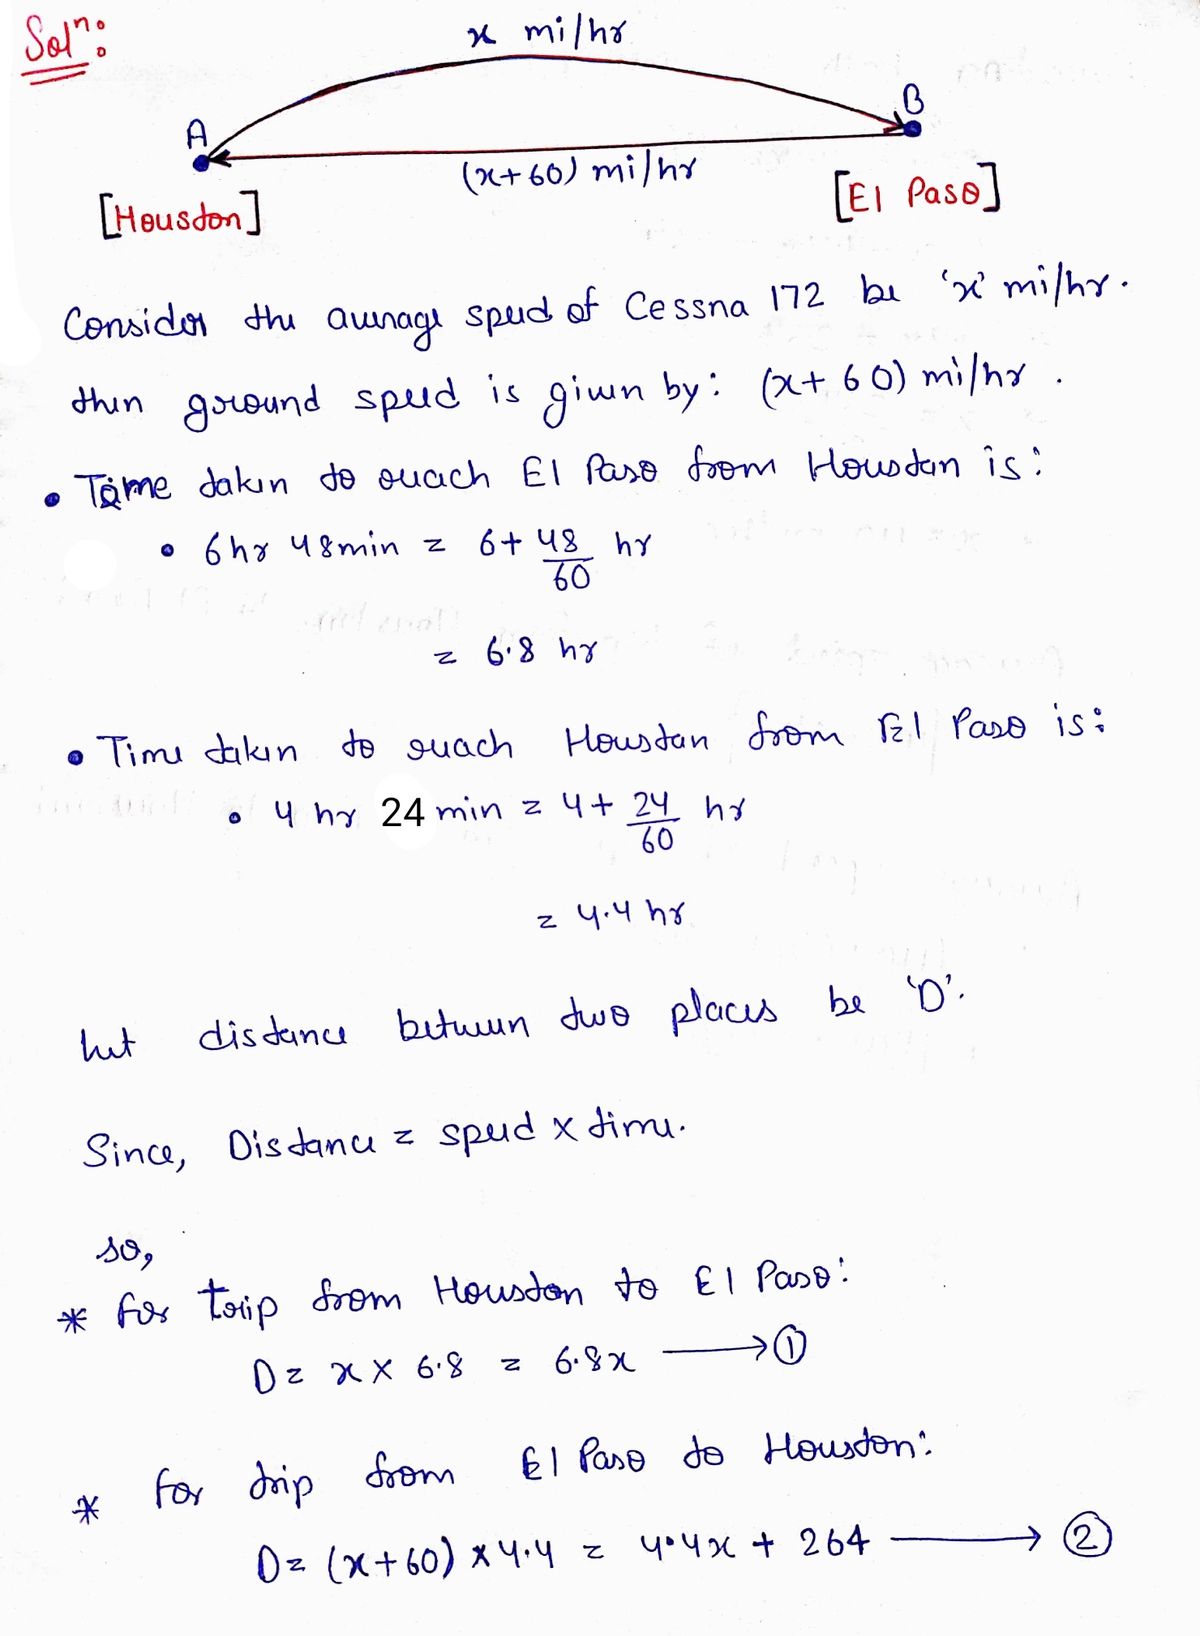 Solⁿ:
x mi/hr
A
B
(x+60) mi/hr
[Houston]
[El Paso]
Consider the average speed of Cessna 172 be 'x' mi/hr.
then ground speed is given by: (x+60) mi/hr.
• Time taken to reach El Paso from Houston is:
• 6hr 48min = 6+48/60 hr
= 6.8 hr
• Time taken to reach Houston from El Paso is:
• 4 hr 24 min = 4+24/60 hr
= 4.4 hr
let distance between two places be 'D'.
Since, Distance = speed × time.
so,
* for trip from Houston to El Paso:
D = x × 6.8 = 6.8x ⟶ ①
* for trip from El Paso to Houston:
D = (x+60) × 4.4 = 4.4x + 264 ⟶ ②